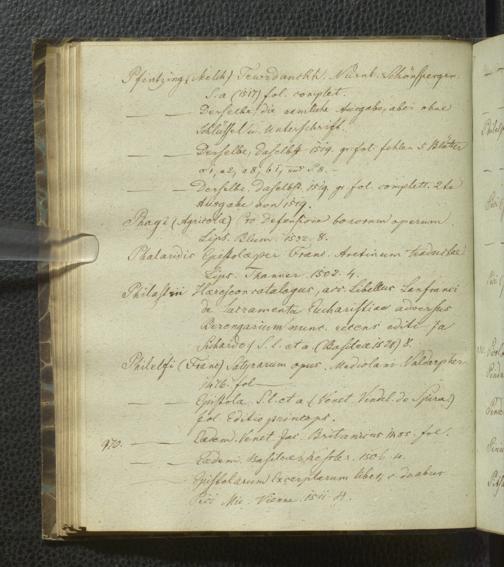 Pfintzing (Melch) Tewrdanckh. Nürnb. Schönsperger.
S. a (1517) fol. complet.
— — Derselbe, die nemliche Ausgabe, aber ohne
Schlüssel u. Unterschrift.
— — Derselbe, daselbst 1519. gr. fol. fehlen 5 Blätter
a 2, a 8, b 1,
— — Derselbe. daselbst. 1519. gr fol. complett. 2te
Ausgabe von 1519.
Phagi (Agricola) pro defensione bonorum operum.
Lips. Blum. 1532. 8.
Phalaridis Epistolae per Franc. Aretinum traductae
Lips. Thanner. 1502. 4.
Philastrii Haereseon catalogus, acc. Libellus Lanfranci
de Sacramento Eucharistiae adversus
Berengarium nunc recens editi Ja
Sichardo S. l. et a (Basileae 1528) 8.
Philelfi (Franc) Satyrarum opus. Mediolani Valdarpher
1476. fol —
— — Epistolae S. l. et a (Venet. Vindel. de Spira.)
fol. Editio princeps.
970. — — Eaedem. Venet. Jac. Britannicus fol.
— — Eaedem. Basileae 1506. 4.
— — Epistolarum liber, c. duabus
Pici Mir. Vienne. 1511. 4.